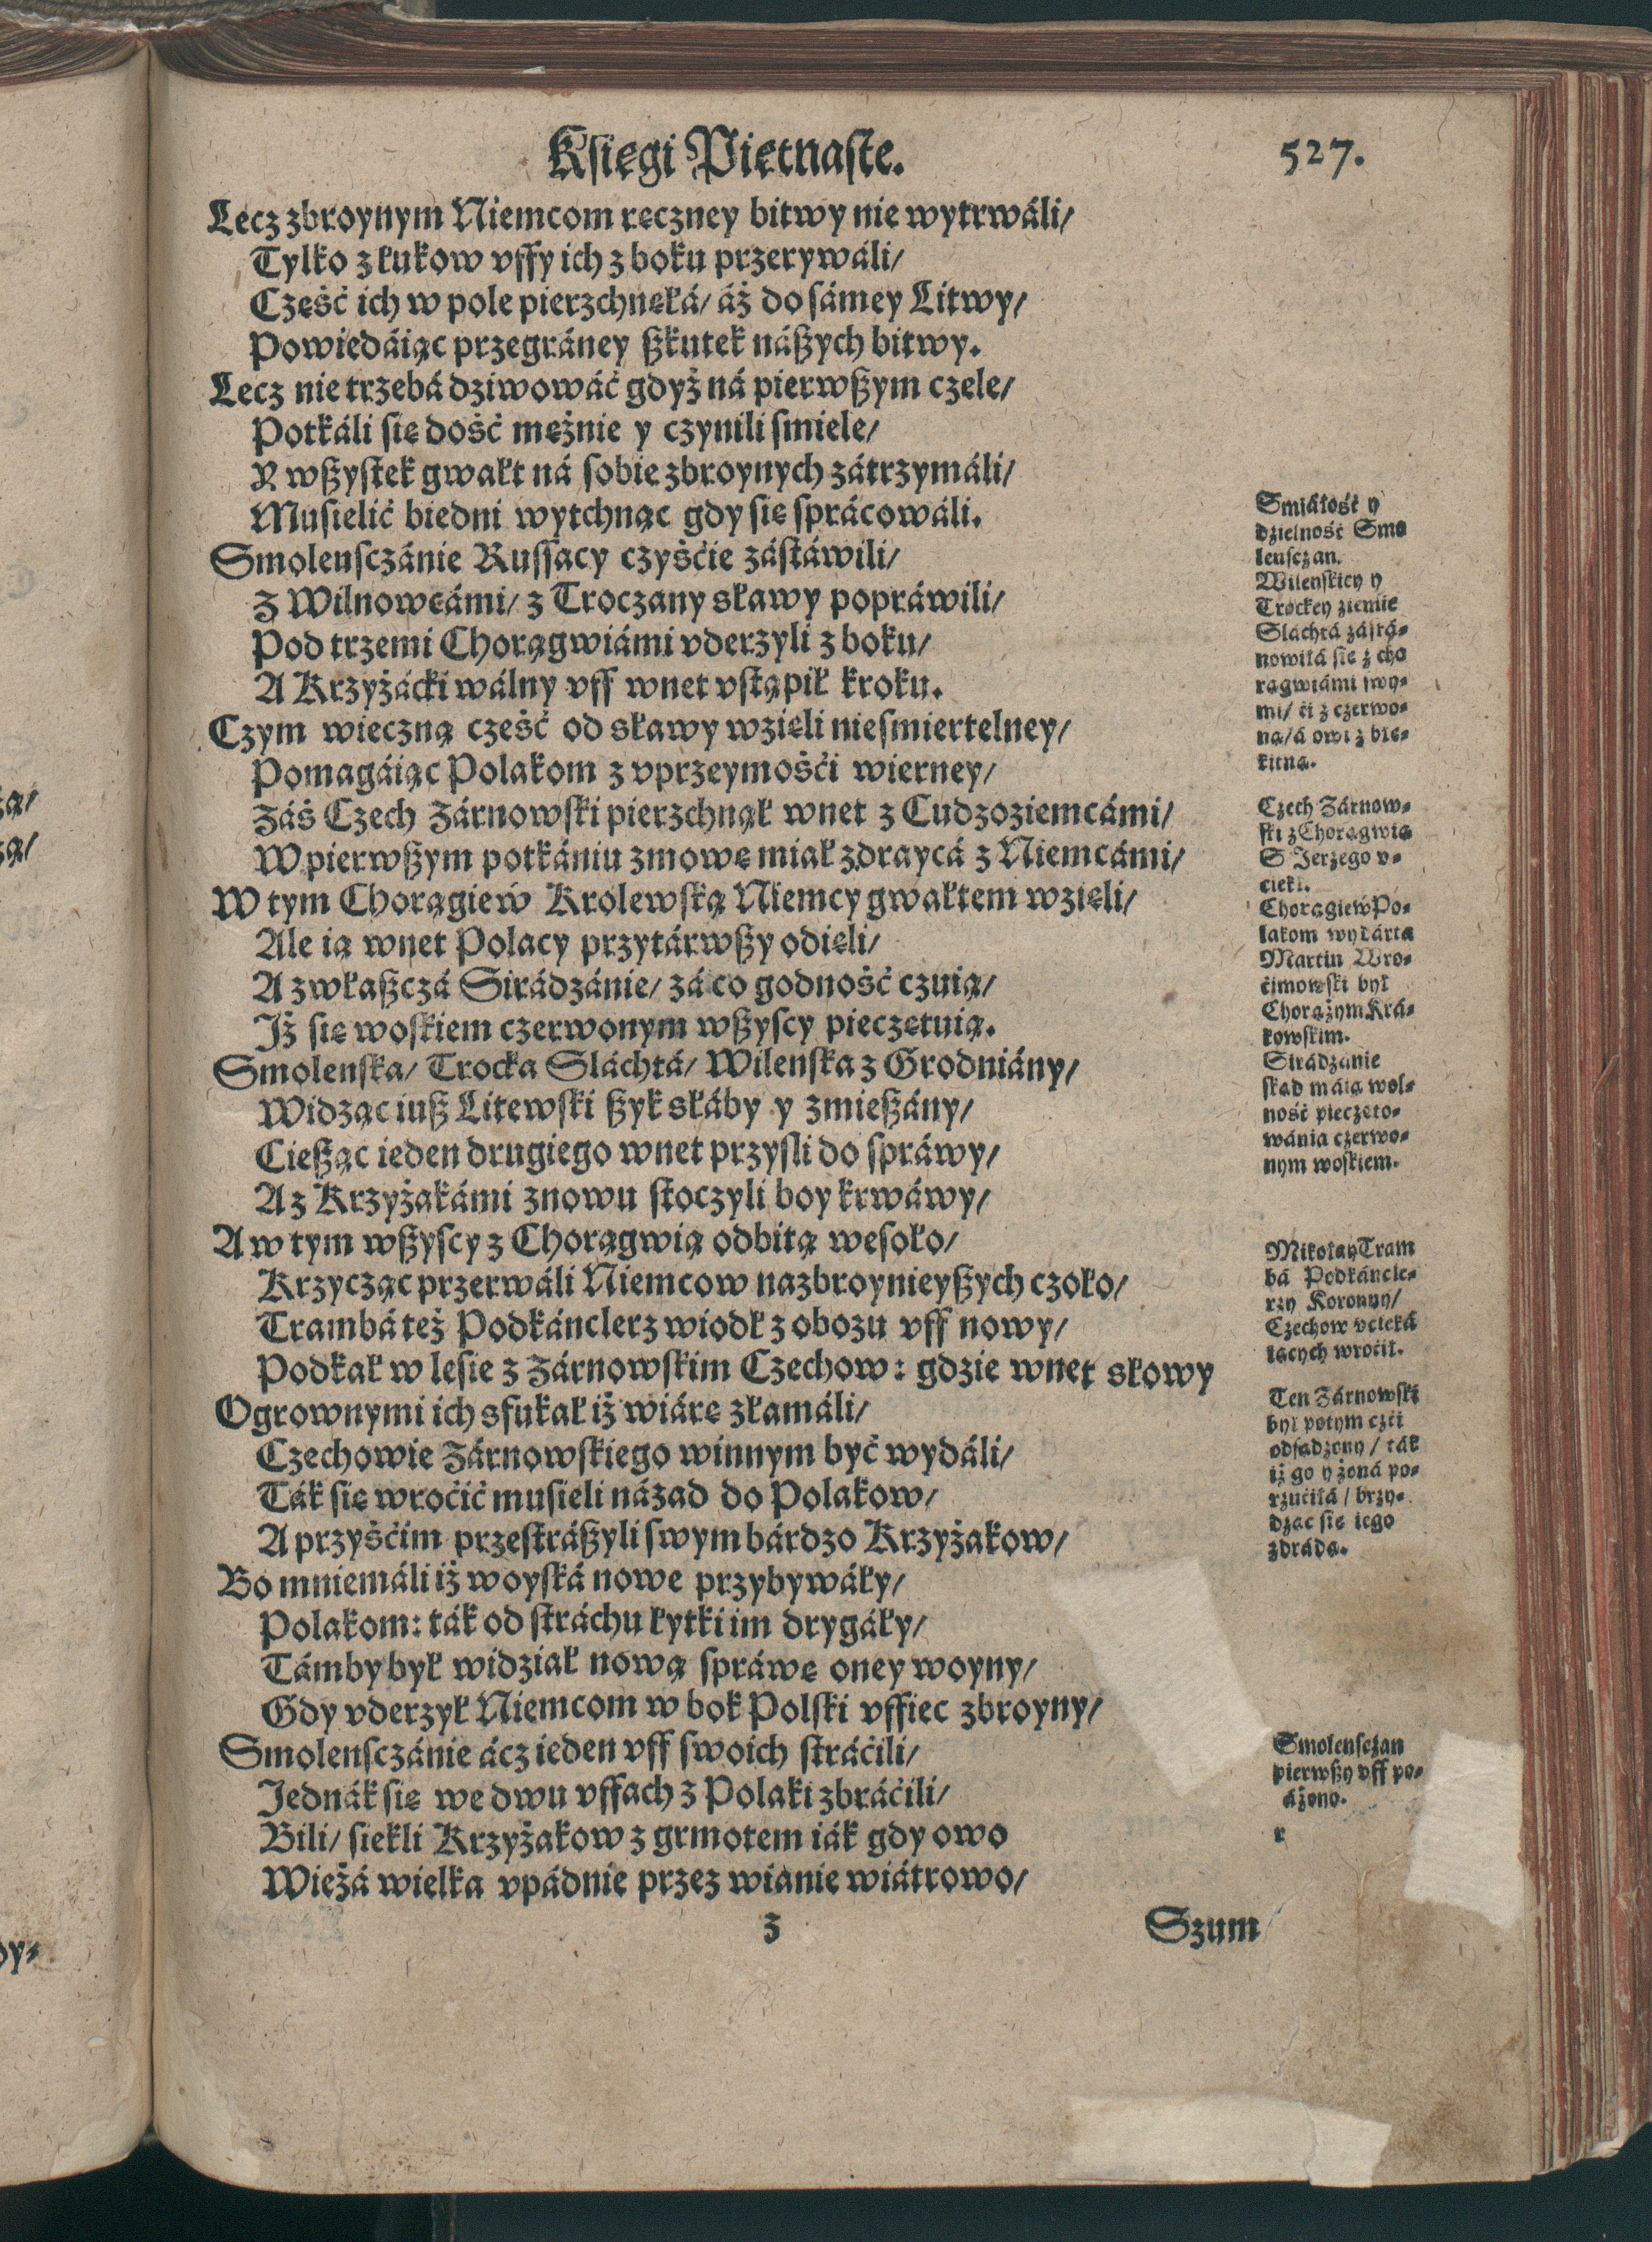 Księgi Piętnaste.
527.
Lecz zbroynym Niemcom ręczney bitwy nie wytrwáli/
Tylko z łukow vffy ich z boku przerywáli/
Część ich w pole pierzchnęłá/ áż do sámey Litwy/
Powiedáiąc przegráney ßkutek náßych bitwy.
Lecz nie trzebá dziwowáć gdyż ná pierwßym czele/
Potkáli się dość mężnie y czynili smiele/
Y wßystek gwałt ná sobie zbroynych zátrzymáli/
Musielić biedni wytchnąc gdy się sprácowáli.
Smolensczánie Russacy czyśćie zástáwili/
Z Wilnowcámi/ z Troczany sławy popráwili/
Pod trzemi Chorągwiámi vderzyli z boku/
A Krzyżácki wálny vff wnet vstąpił kroku.
Czym wieczną cześć od sławy wzięli niesmiertelney/
Pomagáiąc Polakom z vprzeymośći wierney/
Záś Czech Zárnowski pierzchnął wnet z Cudzoziemcámi/
W pierwßym potkániu zmowę miał zdraycá z Niemcámi/
W tym Chorągiew Krolewską Niemcy gwałtem wzięli/
Ale ią wnet Polacy przytárwßy odięli/
A zwłaßczá Sirádzánie/ zá co godność czuią/
Iż się woskiem czerwonym wßyscy pieczętuią.
Smolenska/ Trocka Sláchtá/ Wilenska z Grodniány/
Widząc iuß Litewski ßyk słáby y zmießány/
Cießąc ieden drugiego wnet przysli do spráwy/
A z Krzyżakámi znowu stoczyli boy krwáwy/
A w tym wßyscy z Chorągwią odbitą wesoło/
Krzycząc przerwáli Niemcow nazbroynieyßych czoło/
Trambá też Podkánclerz wiodł z obozu vff nowy/
Podkał w lesie z Zárnowskim Czechow: gdzie wnet słowy
Ogrownymi ich sfukał iż wiárę złamáli/
Czechowie Zárnowskiego winnym być wydáli/
Ták się wroćić musieli názad do Polakow/
A przyśćim przestráßyli swym bárdzo Krzyżakow/
Bo mniemáli iż woyská nowe przybywáły/
Polakom: ták od stráchu łytki im drygáły/
Támby był widział nową spráwę oney woyny/
Gdy vderzył Niemcom w bok Polski vffiec zbroyny/
Smolensczánie ácz ieden vff swoich stráćili/
Jednák się we dwu vffach z Polaki zbráćili/
Bili/ siekli Krzyżakow z grmotem iák gdy owo
Wieżá wielka vpádnie przez wianie wiátrowo/
z
Szum
Smiáłość y
dzielność Smo
lensczan.
Wilenskiey y
Trockey ziemie
Sláchtá zástá-
nowiłá się z cho
rągwiámi swy-
mi/ ći z czerwo-
ną/ á owi z błę-
kitną.
Czech Zárnow-
ski z Chorągwią
S Jerzego v-
ciekł.
Chorągiew Po-
lakom wydártą
Martin Wro-
ćimowski był
Chorążym Krá-
kowskim.
Sirádzanie
skąd máią wol-
ność pieczęto-
wánia czerwo-
nym woskiem.
Mikołay Tram
bá Podkáncle-
rzy Koronny/
Czechow vćieká
iących wroćił.
Ten Zárnowski
był potym czći
odsądzony / ták
iż go y żoná po-
rzućiłá / brzy-
dząc się iego
zdrádą.
Smolensczan
pierwßy vff po-
áżono.
r